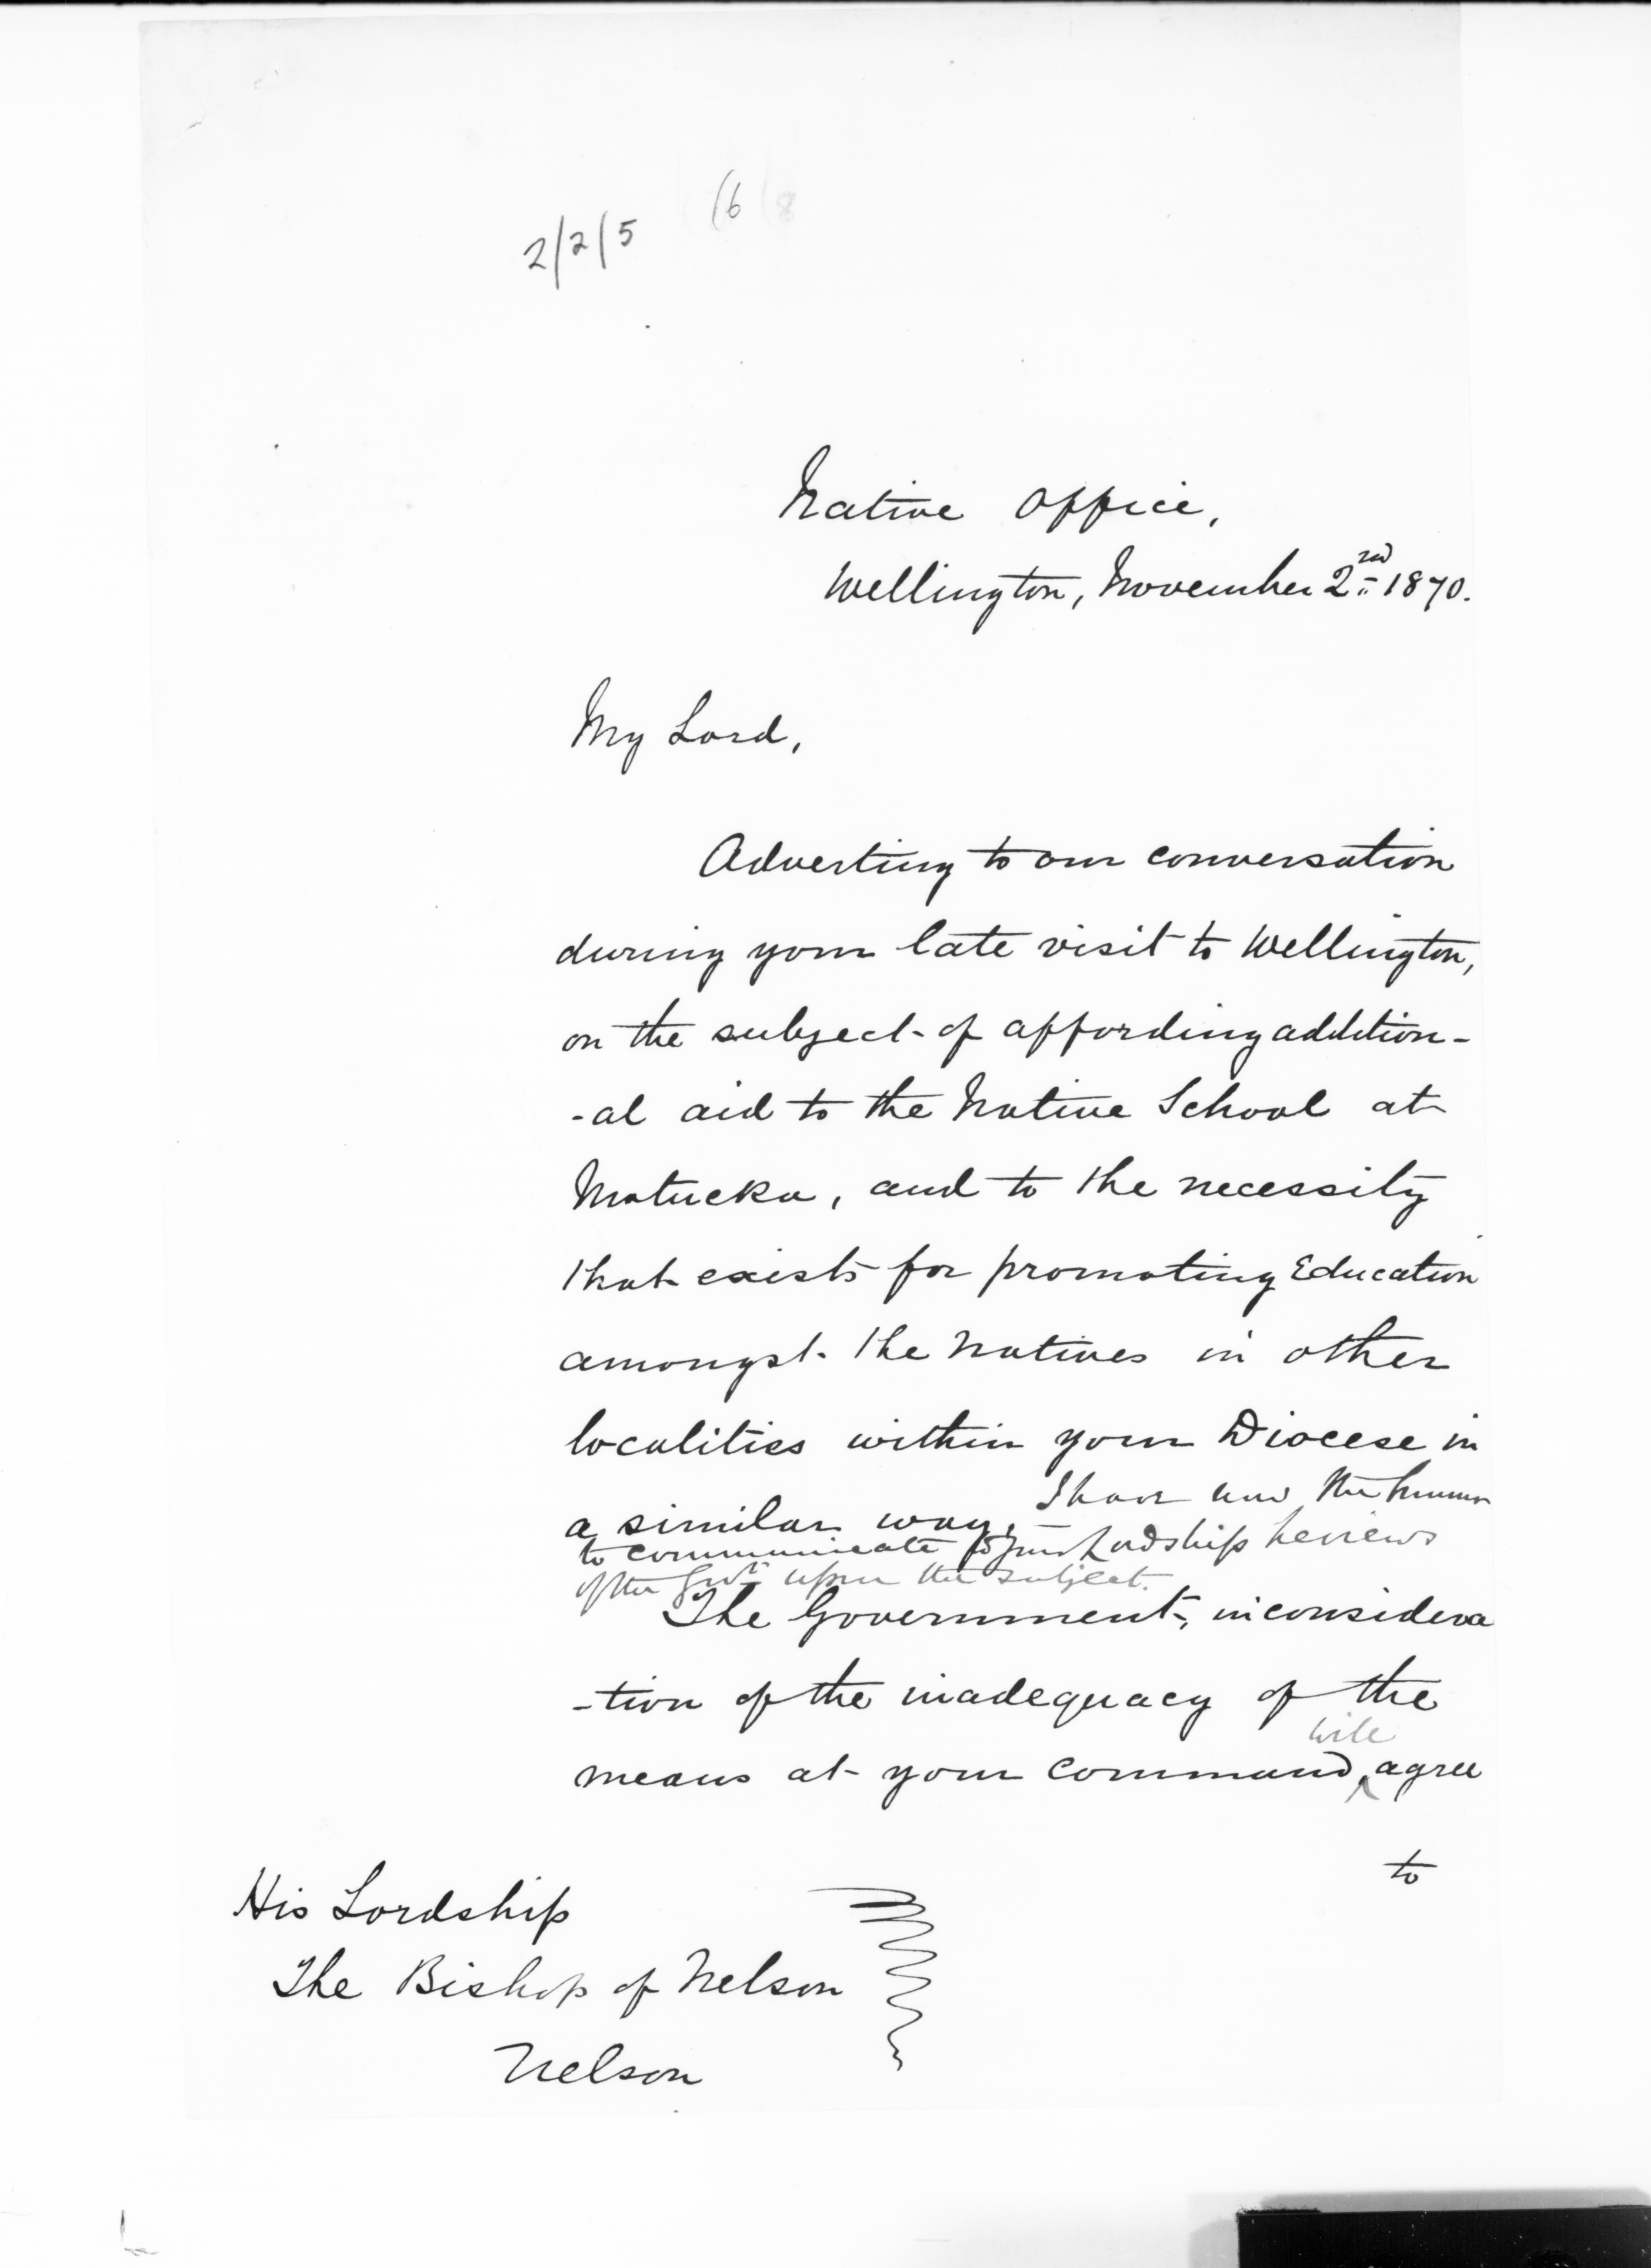 2/2/5 (6 (8
Native Office,
Wellington, November 2nd 1870.
My Lord,
Adverting to our conversation
during your late visit to Wellington,
on the subject of affording addition-
-al aid to the Native School at
Motueka, and to the necessity
that exists for promoting Education
amongst the Natives in other
localities within your Diocese in
a similar way, I have now the honor
to communicate to your Lordship the views
of the Govt upon the subject.
The Government, in considera
-tion of the inadequacy of the
will
means at your command, agree
to
His Lordship
The Bishop of Nelson
Nelson